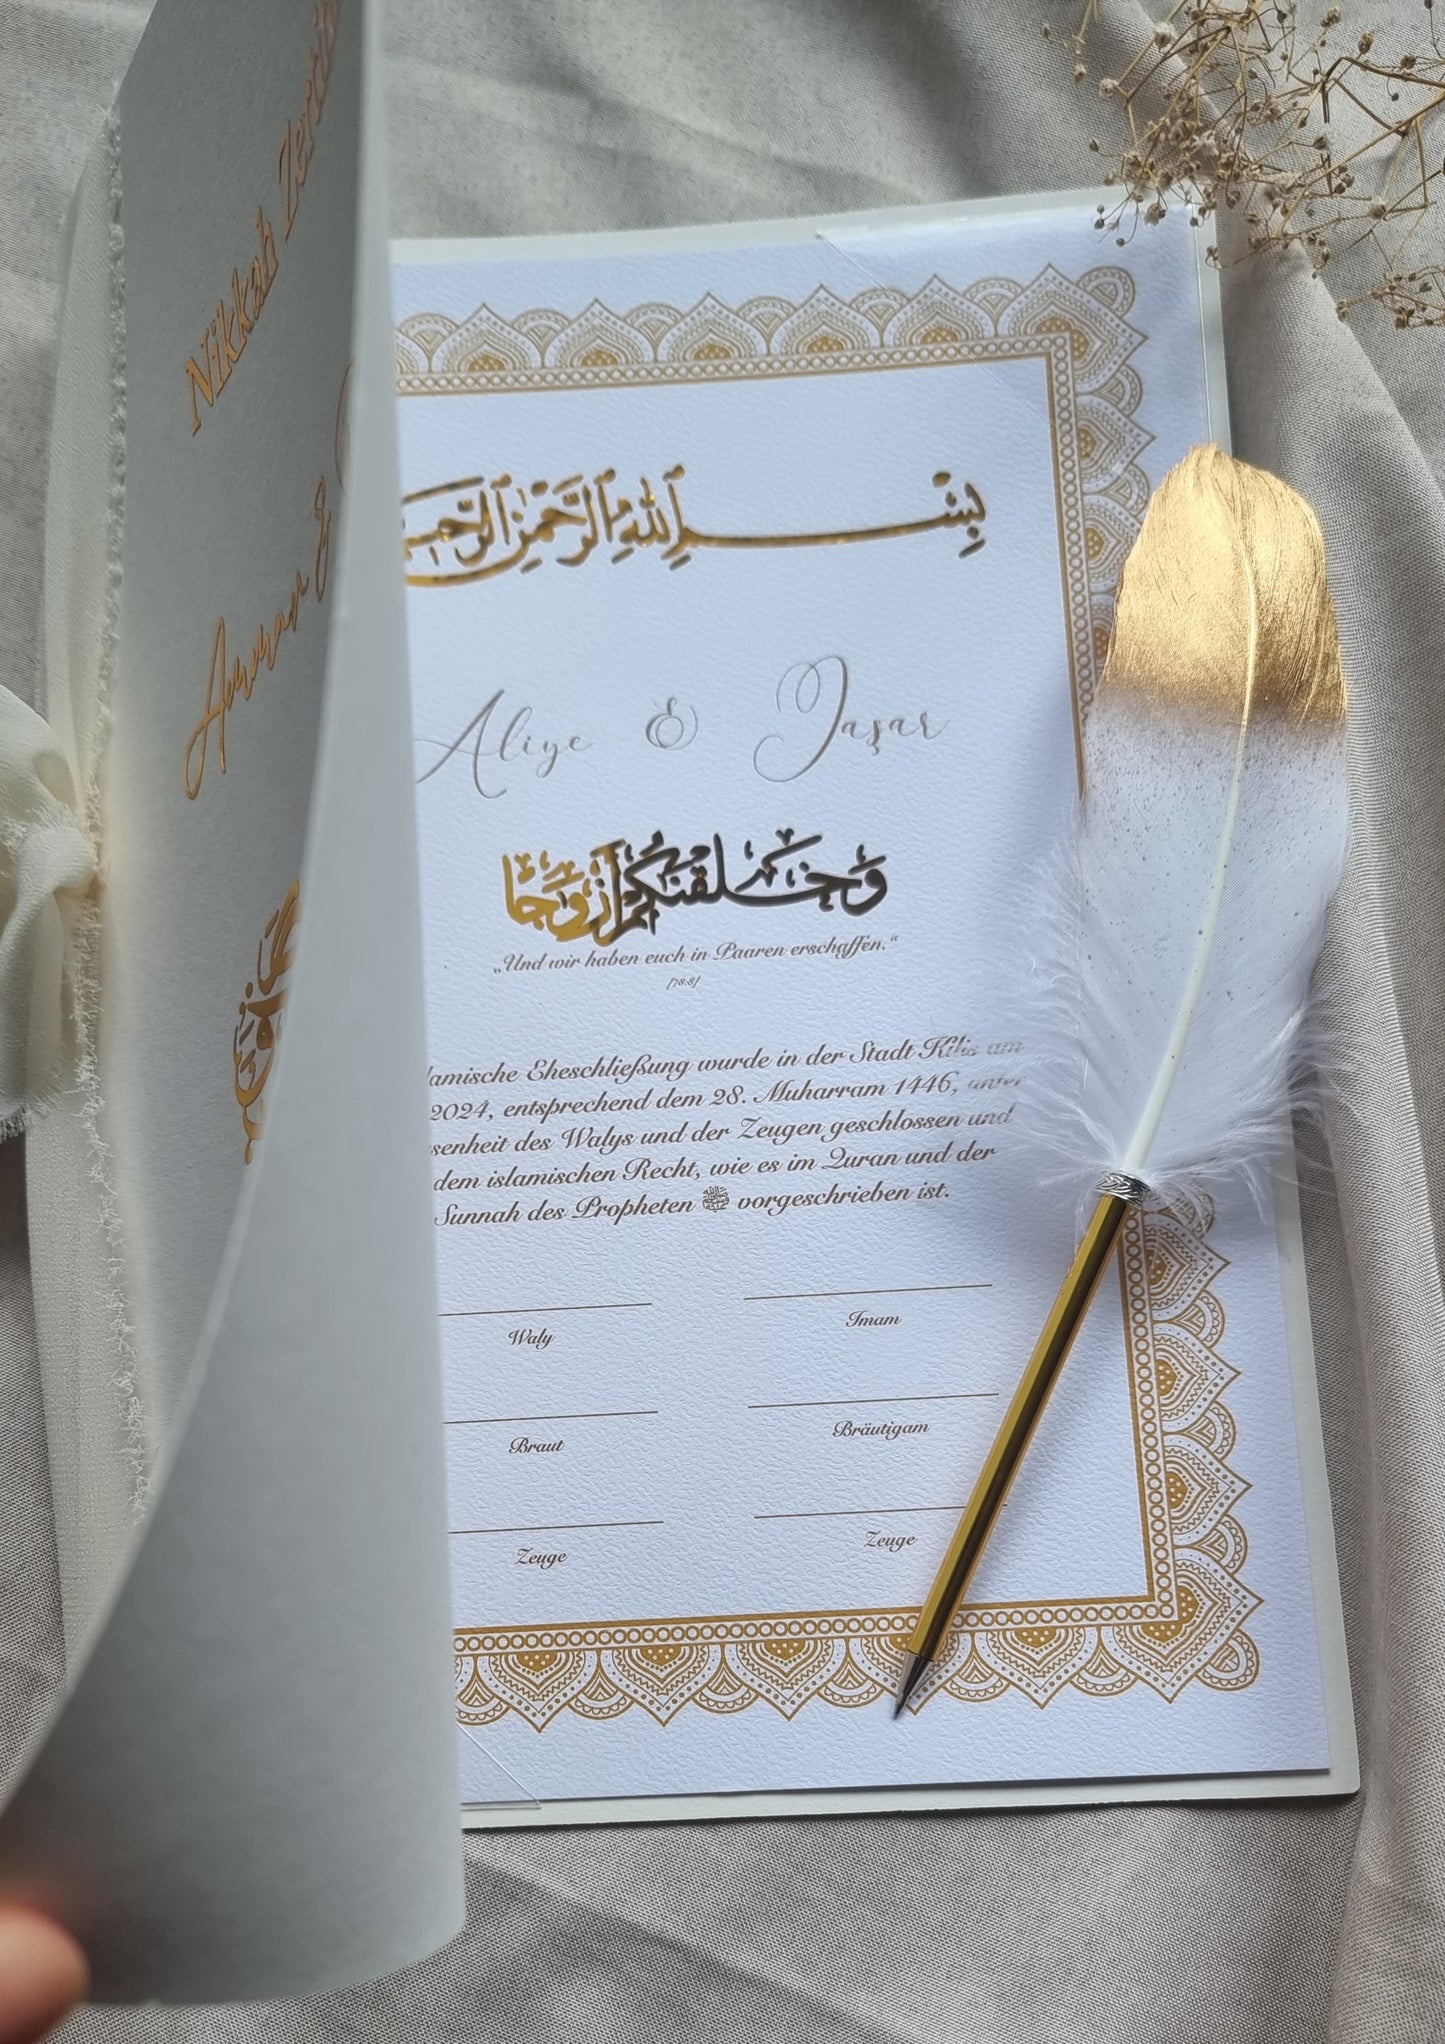 Nikkah
Amman &
بِسْمِ ٱللَّهِ ٱلرَّحْمَٰنِ
Aliye & Jaşar
وَخَلَقْنَٰكُمْ أَزْوَٰجًا
„Und wir haben euch in Paaren erschaffen.“
[78:8]
Eheschließung wurde in der Stadt Kilis am
2024, entsprechend dem 28. Muharram 1446, unter
des Walys und der Zeugen geschlossen und
dem islamischen Recht, wie es im Quran und der
Sunnah des Propheten ﷺ vorgeschrieben ist.
Waly Imam
Braut Bräutigam
Zeuge Zeuge